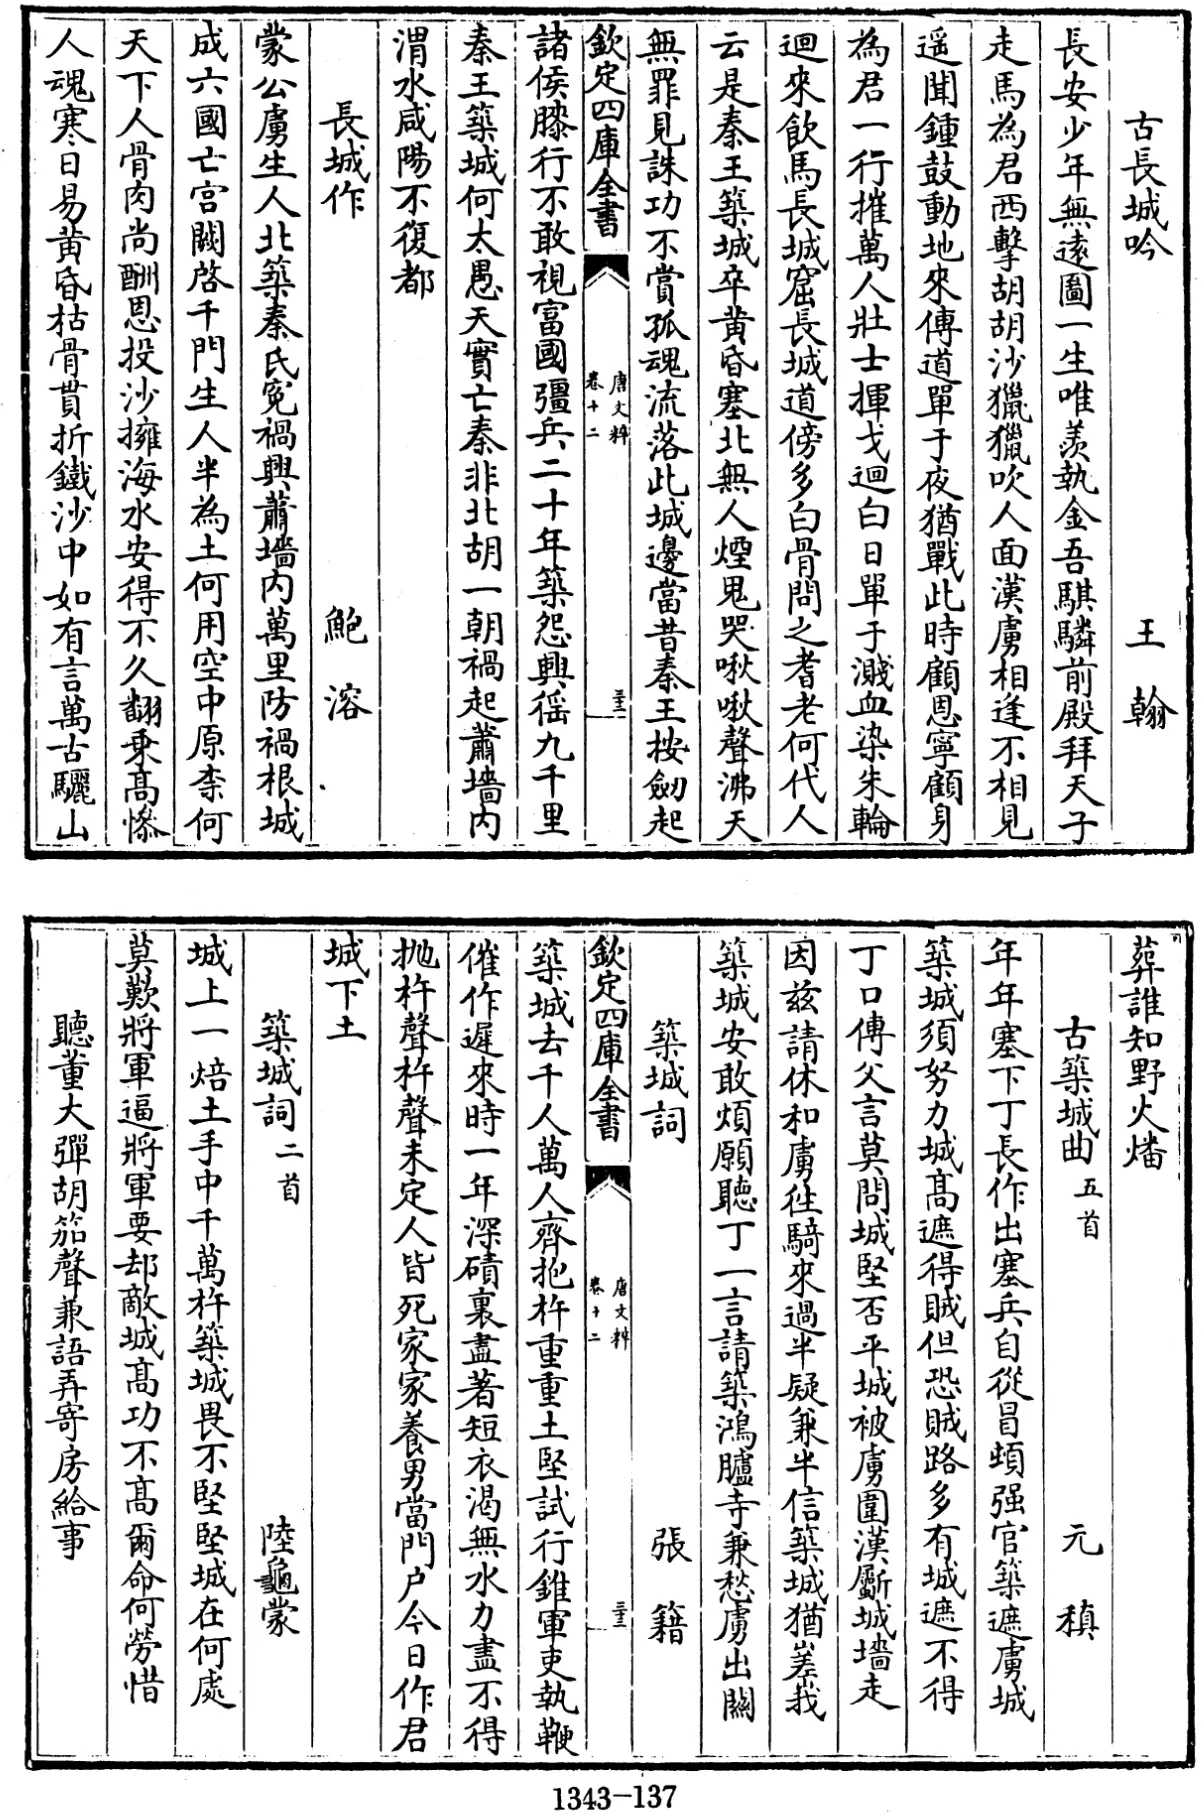 古長城吟 王翰
長安少年無遠圖一生唯羨執金吾騏驎前殿拜天子
走馬為君西擊胡胡沙獵獵吹人面漢虜相逢不相見
遥聞鍾鼓動地來傳道單于夜猶戰此時顧恩寧顧身
為君一行摧萬人壯士揮戈迴白日單于濺血染朱輪
迴來飲馬長城窟長城道傍多白骨問之耆老何代人
云是秦王築城卒黄昏塞北無人煙鬼哭啾啾聲沸天
無罪見誅功不賞孤魂流落此城邊當昔秦王按劒起
欽定四庫全書 唐文粹 卷十二 三十三
諸侯膝行不敢視富國彊兵二十年築怨興徭九千里
秦王築城何太愚天實亡秦非北胡一朝禍起蕭墻内
渭水咸陽不復都
長城作 鮑溶
蒙公虜生人北築秦氏寃禍興蕭墻内萬里防禍根城
成六國亡宫闕啓千門生人半為土何用空中原柰何
天下人骨肉尚酬恩投沙擁海水安得不久翻乗髙慘
人魂寒日易黄昏枯骨貫折鐵沙中如有言萬古驪山
葬誰知野火燔
古築城曲五首 元稹
年年塞下丁長作出塞兵自從冒頓强官築遮虜城
築城須努力城髙遮得賊但恐賊路多有城遮不得
丁口傳父言莫問城堅否平城被虜圍漢斸城墻走
因兹請休和虜徃騎來過半疑兼半信築城猶嵳峩
築城安敢煩願聽丁一言請築鴻臚寺兼愁虜出關
築城詞 張籍
欽定四庫全書 唐文粹 卷十二 三十三
築城去千人萬人齊抱杵重重土堅試行錐軍吏執鞭
催作遲來時一年深磧裏盡著短衣渴無水力盡不得
抛杵聲杵聲未定人皆死家家養男當門户今日作君
城下土
築城詞二首 陸龜蒙
城上一焙土手中千萬杵築城畏不堅堅城在何處
莫歎將軍逼將軍要却敵城髙功不髙爾命何勞惜
聽董大彈胡笳聲兼語弄寄房給事
1343-137